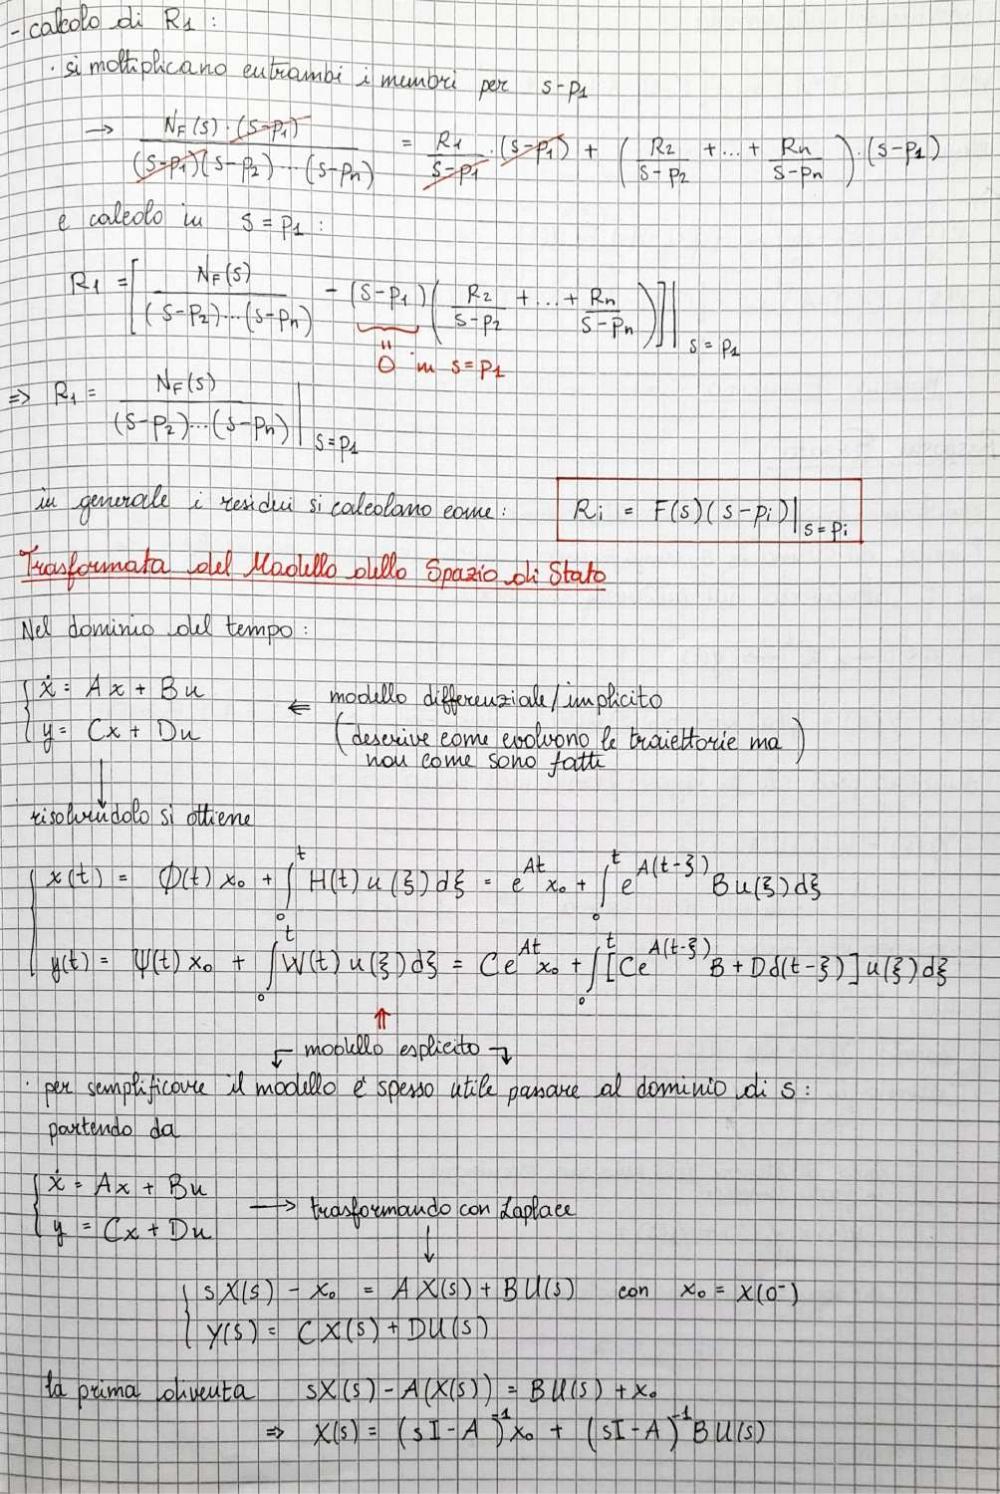 - calcolo di R₁ :
· si moltiplicano entrambi i membri per s-p₁
→ N_F(s)·(s-p₁) / (s-p₁)(s-p₂)...(s-pₙ) = R₁/(s-p₁) · (s-p₁) + (R₂/(s-p₂) + ... + Rₙ/(s-pₙ)) · (s-p₁)
e calcolo in s = p₁ :
R₁ = [ N_F(s) / (s-p₂)...(s-pₙ) - (s-p₁) ( R₂/(s-p₂) + ... + Rₙ/(s-pₙ) ) ] |s = p₁
"
0 in s=p₁
⇒ R₁ = N_F(s) / (s-p₂)...(s-pₙ) |s=p₁
in generale i residui si calcolano come : Ri = F(s)(s-pi)|s=pi
Trasformata del Modello dello Spazio di Stato
Nel dominio del tempo :
{ ẋ = Ax + Bu
y = Cx + Du
⇐ modello differenziale/implicito
(descrive come evolvono le traiettorie ma
non come sono fatte)
↓
risolvendolo si ottiene
{ x(t) = Φ(t) x₀ + ∫₀ᵗ H(t) u(ξ) dξ = e^{At} x₀ + ∫₀ᵗ e^{A(t-ξ)} B u(ξ) dξ
y(t) = Ψ(t) x₀ + ∫₀ᵗ W(t) u(ξ) dξ = C e^{At} x₀ + ∫₀ᵗ [C e^{A(t-ξ)} B + D δ(t-ξ)] u(ξ) dξ
⇑
modello esplicito
· per semplificare il modello è spesso utile passare al dominio di s :
partendo da
{ ẋ = Ax + Bu
y = Cx + Du
→ trasformando con Laplace
↓
{ sX(s) - x₀ = A X(s) + B U(s) con x₀ = X(0⁻)
Y(s) = C X(s) + D U(s)
la prima diventa sX(s) - A(X(s)) = B U(s) + x₀
⇒ X(s) = (sI - A)⁻¹ x₀ + (sI - A)⁻¹ B U(s)